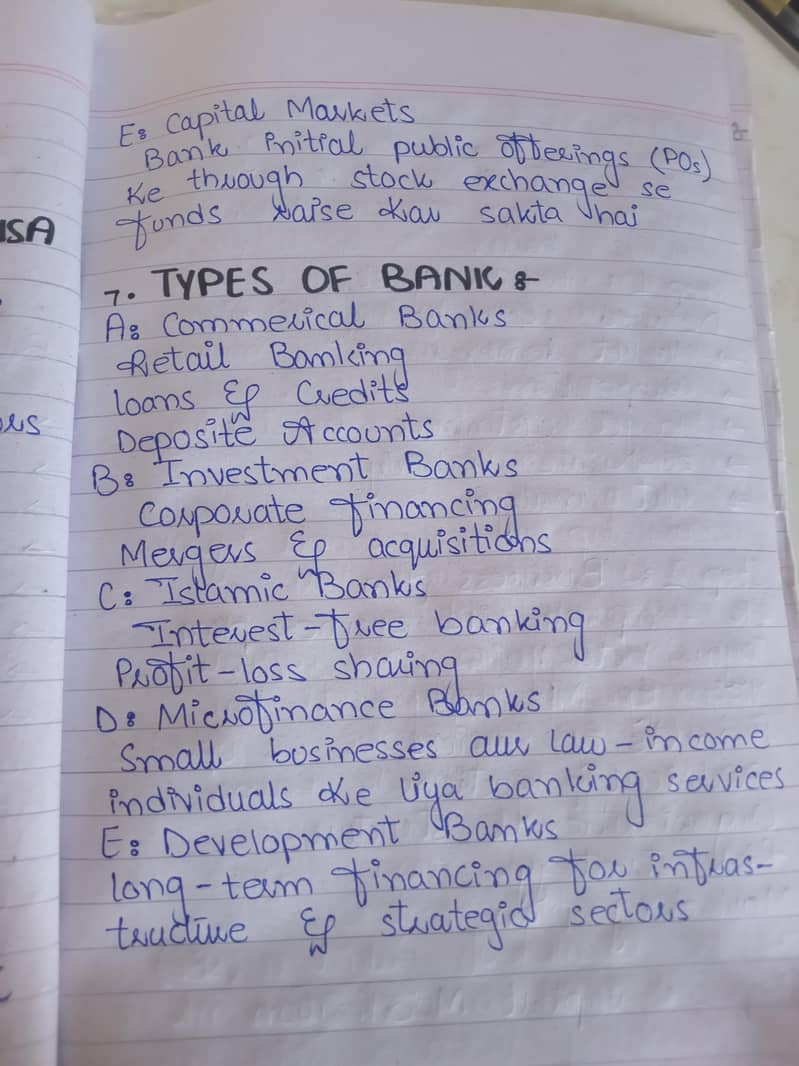 E: Capital Markets
Bank initial public offerings (POs)
Ke through stock exchange se
funds raise kar sakta hai
7. TYPES OF BANK :-
A: Commerical Banks
Retail Banking
loans & Credits
Deposite Accounts
B: Investment Banks
Corporate financing
Mergers & acquisitions
C: Islamic Banks
Interest-free banking
Profit-loss sharing
D: Microfinance Banks
Small businesses aur law-income
individuals ke liya banking services
E: Development Banks
long-term financing for infras-
tructure & strategic sectors
ISA